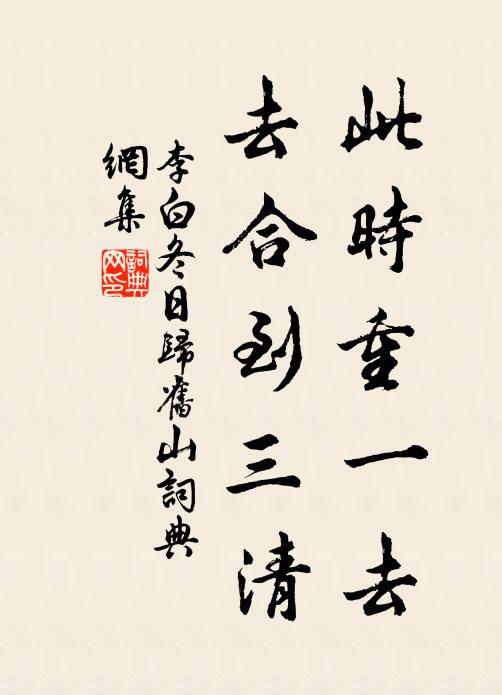 此時重一去
去合到三清
李白冬日歸舊山詞典
網集
詞典
网印